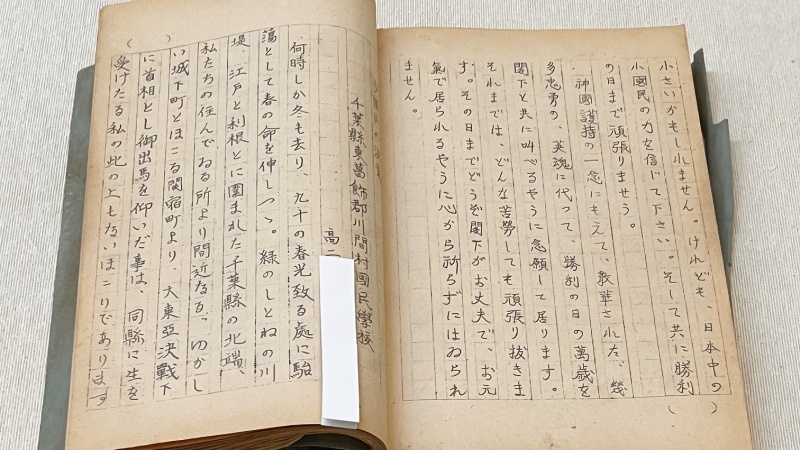 小さいかもしれません。けれども、日本中の
小國民の力を信じて下さい。そして共に勝利
の日まで頑張りませう。
神國護持の一念にもえて、散華された、幾
多忠勇の、英魂に代つて、勝利の日の萬歳を
閣下と共に叫べるやうに念願して居ります。
それまでは、どんな苦勞しても頑張り抜きま
す。その日までどうぞ閣下がお丈夫で、お元
氣で居られるやうに心から祈らずにはゐられ
ません。
千葉縣東葛飾郡川間村國民學校
高二
何時しか冬も去り、九十の春光致る處に駘
蕩として春の命を伸しつゝ。緑のしとねの川
堤、江戸と利根とに圍まれた千葉縣の北端、
私たちの住んでゐる所より間近なる、ゆかし
い城下町とほこる関宿町より、大東亞決戰下
に首相とし御出馬を仰いだ事は、同縣に生を
受けたる私の此の上もないほこりであります